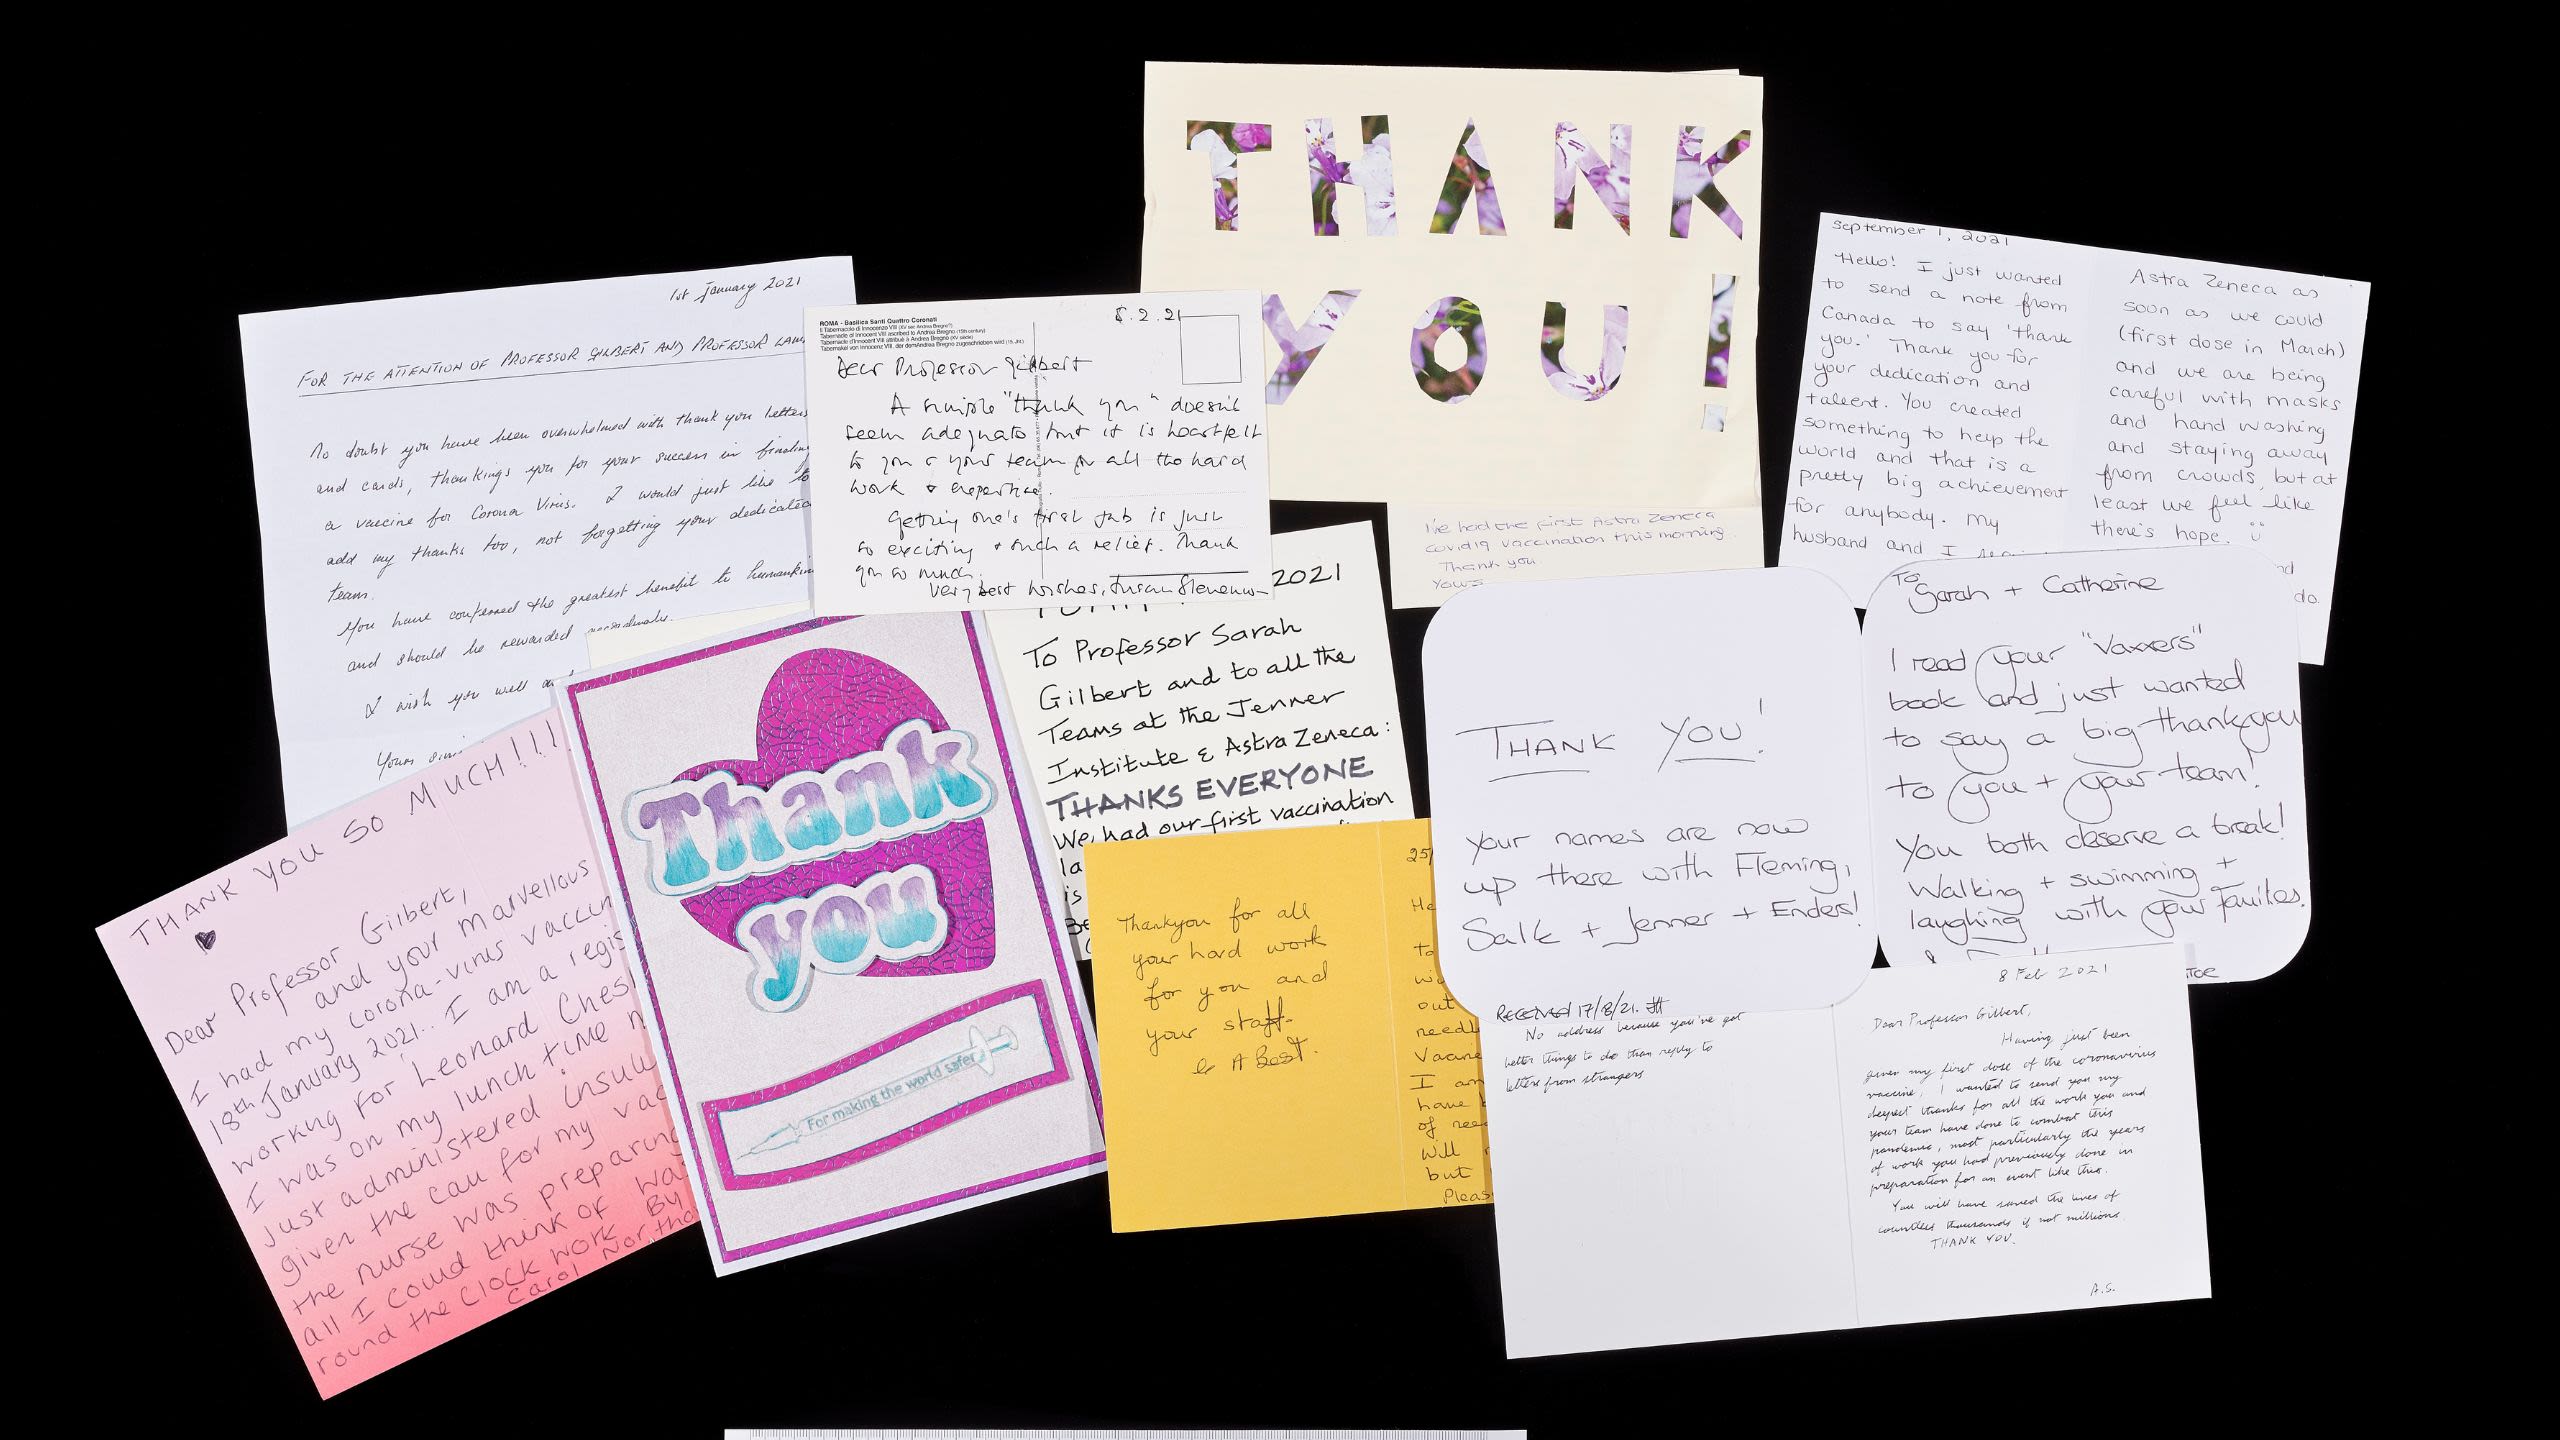 1st January 2021
FOR THE ATTENTION OF PROFESSOR GILBERT AND PROFESSOR LAM
No doubt you have been overwhelmed with thank you letters
and cards, thankings you for your success in finding
a vaccine for Corona Virus. I would just like to
add my thanks too, not forgetting your dedicated
team.
You have conferred the greatest benefit to humankin
and should be rewarded accordingly.
I wish you well
Yours
ROMA - Basilica Santi Quattro Coronati
Il Tabernacolo di Innocenzo VIII (XV sec Andrea Bregno?)
Tabernacle of Innocent VIII ascribed to Andrea Bregno (15th century)
Tabernacle d'Innocent VIII attribué à Andrea Bregno (XV siècle)
Tabernakel von Innocenz VIII, der dem Andrea Bregno zugeschrieben wird (15. Jht.)
8.2.21
Dear Professor Gilbert
A simple "thank you" doesn't
seem adequate but it is heartfelt
to you & your team for all the hard
work & expertise.
Getting one's first jab is just
so exciting & such a relief. Thank
you so much.
Very best wishes, Susan
THANK
YOU!
I've had the first Astra Zeneca
covid19 vaccination this morning.
Thank you.
Yours
September 1, 2021
Hello! I just wanted
to send a note from
Canada to say 'thank
you.' Thank you for
your dedication and
taleent. You created
something to help the
world and that is a
pretty big achievement
for anybody. My
husband and I
Astra Zeneca as
soon as we could
(first dose in March)
and we are being
careful with masks
and hand washing
and staying away
from crowds, but at
least we feel like
there's hope.
do.
THANK YOU SO MUCH!!!
Dear Professor Gilbert,
and your marvellous
I had my corona-virus vaccin
18th January 2021.. I am a regis
working for Leonard Ches
I was on my lunch time
just administered insul
given the call for my vac
the nurse was preparing
all I could think of wa
round the clock work. By
Carol Northo
Thank
you
For making the world safer
2021
To Professor Sarah
Gilbert and to all the
Teams at the Jenner
Institute & Astra Zeneca:
THANKS EVERYONE
We had our first vaccination
la
is
Be
Thankyou for all
your hard work
for you and
your staff.
25/
He
to
wi
out
needl
Vaccine
I am
have b
of nee
will
but
Pleas
THANK YOU!
Your names are now
up there with Fleming,
Salk + Jenner + Enders!
To
Sarah + Catherine
I read your "Vaxxers"
book and just wanted
to say a big thankyou
to you + your team!
You both deserve a break!
Walking + swimming +
laughing with your families.
Received 17/8/21.
No address because you've got
better things to do than reply to
letters from strangers
8 Feb 2021
Dear Professor Gilbert,
Having just been
given my first dose of the coronavirus
vaccine, I wanted to send you my
deepest thanks for all the work you and
your team have done to combat this
pandemic, most particularly the years
of work you had previously done in
preparation for an event like this.
You will have saved the lives of
countless thousands if not millions.
THANK YOU.
A.S.